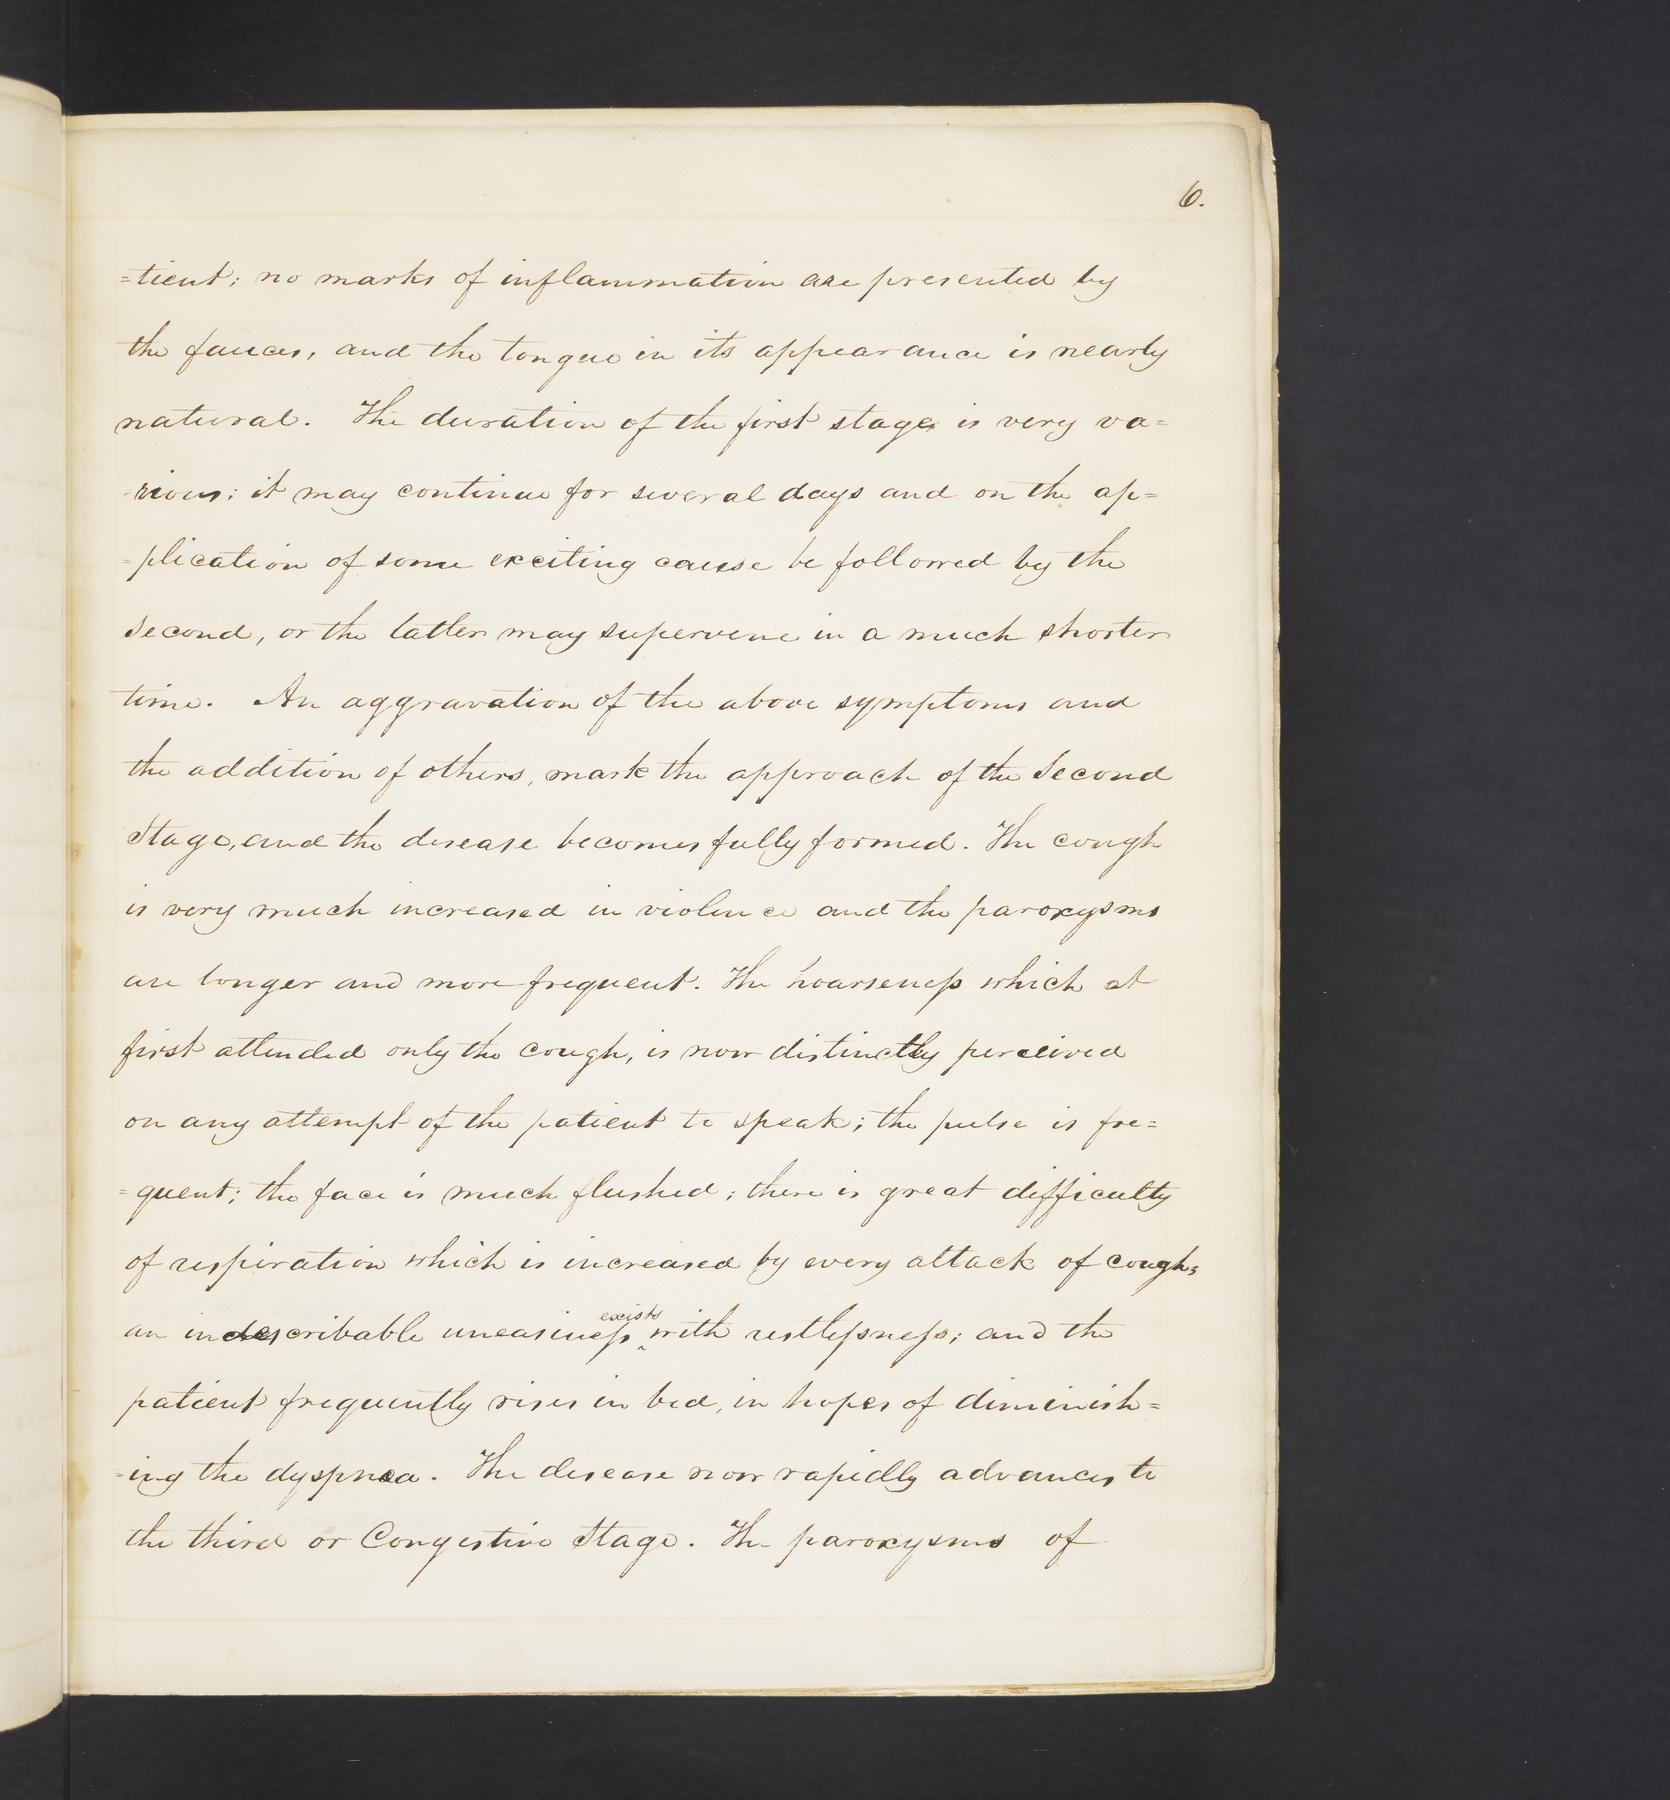 6.
=tient; no marks of inflammation are presented by
the fauces, and the tongue in its appearance is nearly
natural. The duration of the first stage is very va=
=rious; it may continue for several days and on the ap=
=plication of some exciting cause be followed by the
second, or the latter may supervene in a much shorter
time. An aggravation of the above symptoms and
the addition of others, mark the approach of the Second
Stage, and the disease becomes fully formed. The cough
is very much increased in violence and the paroxysms
are longer and more frequent. The hoarseness which at
first attended only the cough, is now distinctly perceived
on any attempt of the patient to speak; the pulse is fre=
=quent; the face is much flushed; there is great difficulty
of respiration which is increased by every attack of cough;
an indescribable uneasiness ^exists with restlessness; and the
patient frequently rises in bed, in hopes of diminish=
=ing the dyspnea. The disease now rapidly advances to
the third or Congestive Stage. The paroxysms of